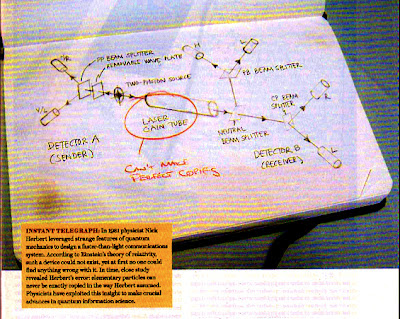 PP BEAM SPLITTER
REMOVABLE WAVE PLATE
TWO-PHOTON SOURCE
PB BEAM SPLITTER
H
LASER
GAIN TUBE
CP BEAM
SPLITTER
R
DETECTOR A
(SENDER)
NEUTRAL
BEAM SPLITTER
DETECTOR B
(RECEIVER)
CAN'T MAKE
PERFECT COPIES
INSTANT TELEGRAPH: In 1981 physicist Nick
Herbert leveraged strange features of quantum
mechanics to design a faster-than-light communications
system. According to Einstein's theory of relativity,
such a device could not exist, yet at first no one could
find anything wrong with it. In time, close study
revealed Herbert's error: elementary particles can
never be exactly copied in the way Herbert assumed.
Physicists have exploited this insight to make crucial
advances in quantum information science.